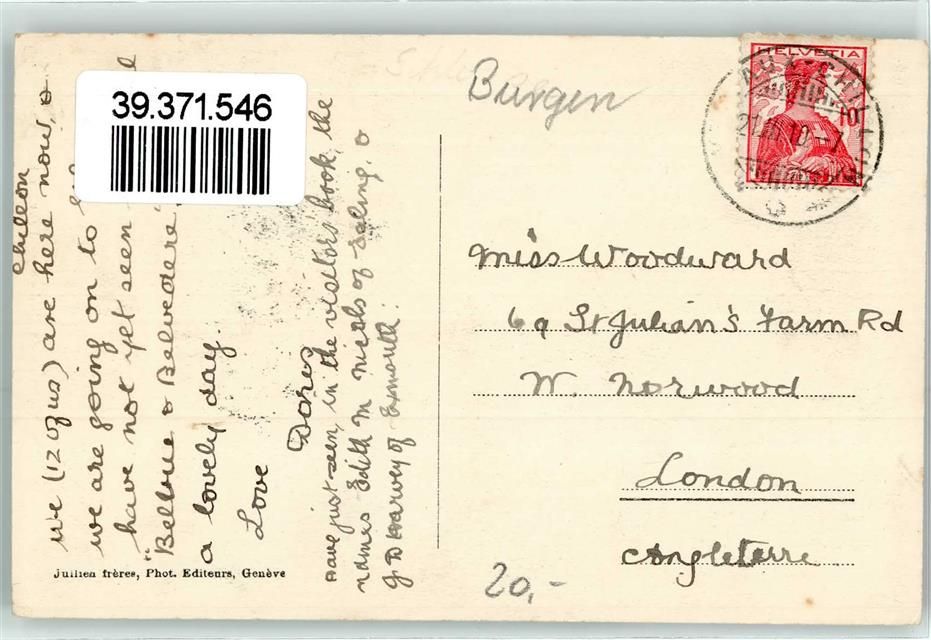 39.371.546
Chillon
we (12 of us) are here now, &
we are going on to
have not yet seen
"Bellvue & Belvedere"
a lovely day.
Love
Doris
Have just seen, in the visitors' book, the
names Edith M Nicols of Ealing, &
G. D Harvey of Exmouth.
Jullien frères, Phot. Editeurs, Genève
Burgen
HELVETIA
10
Miss Woodward
69 St Julian's Farm Rd
W. Norwood
London
Angleterre
20,-